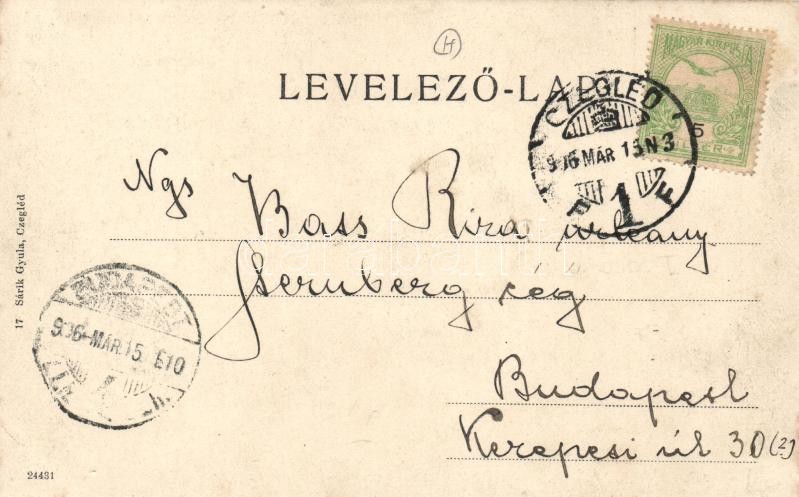 H
LEVELEZŐ-LAP
MAGYAR KIR. POSTA
5
CZEGLÉD
906 MÁR 15 N3
1
Ngs
Bass Riza urleány
Sternberg czég
Budapest
Kerepesi út 30 (2)
17 Sárik Gyula, Czegléd
BUDAPEST
906-MÁR.15. E10
24431
darabanth